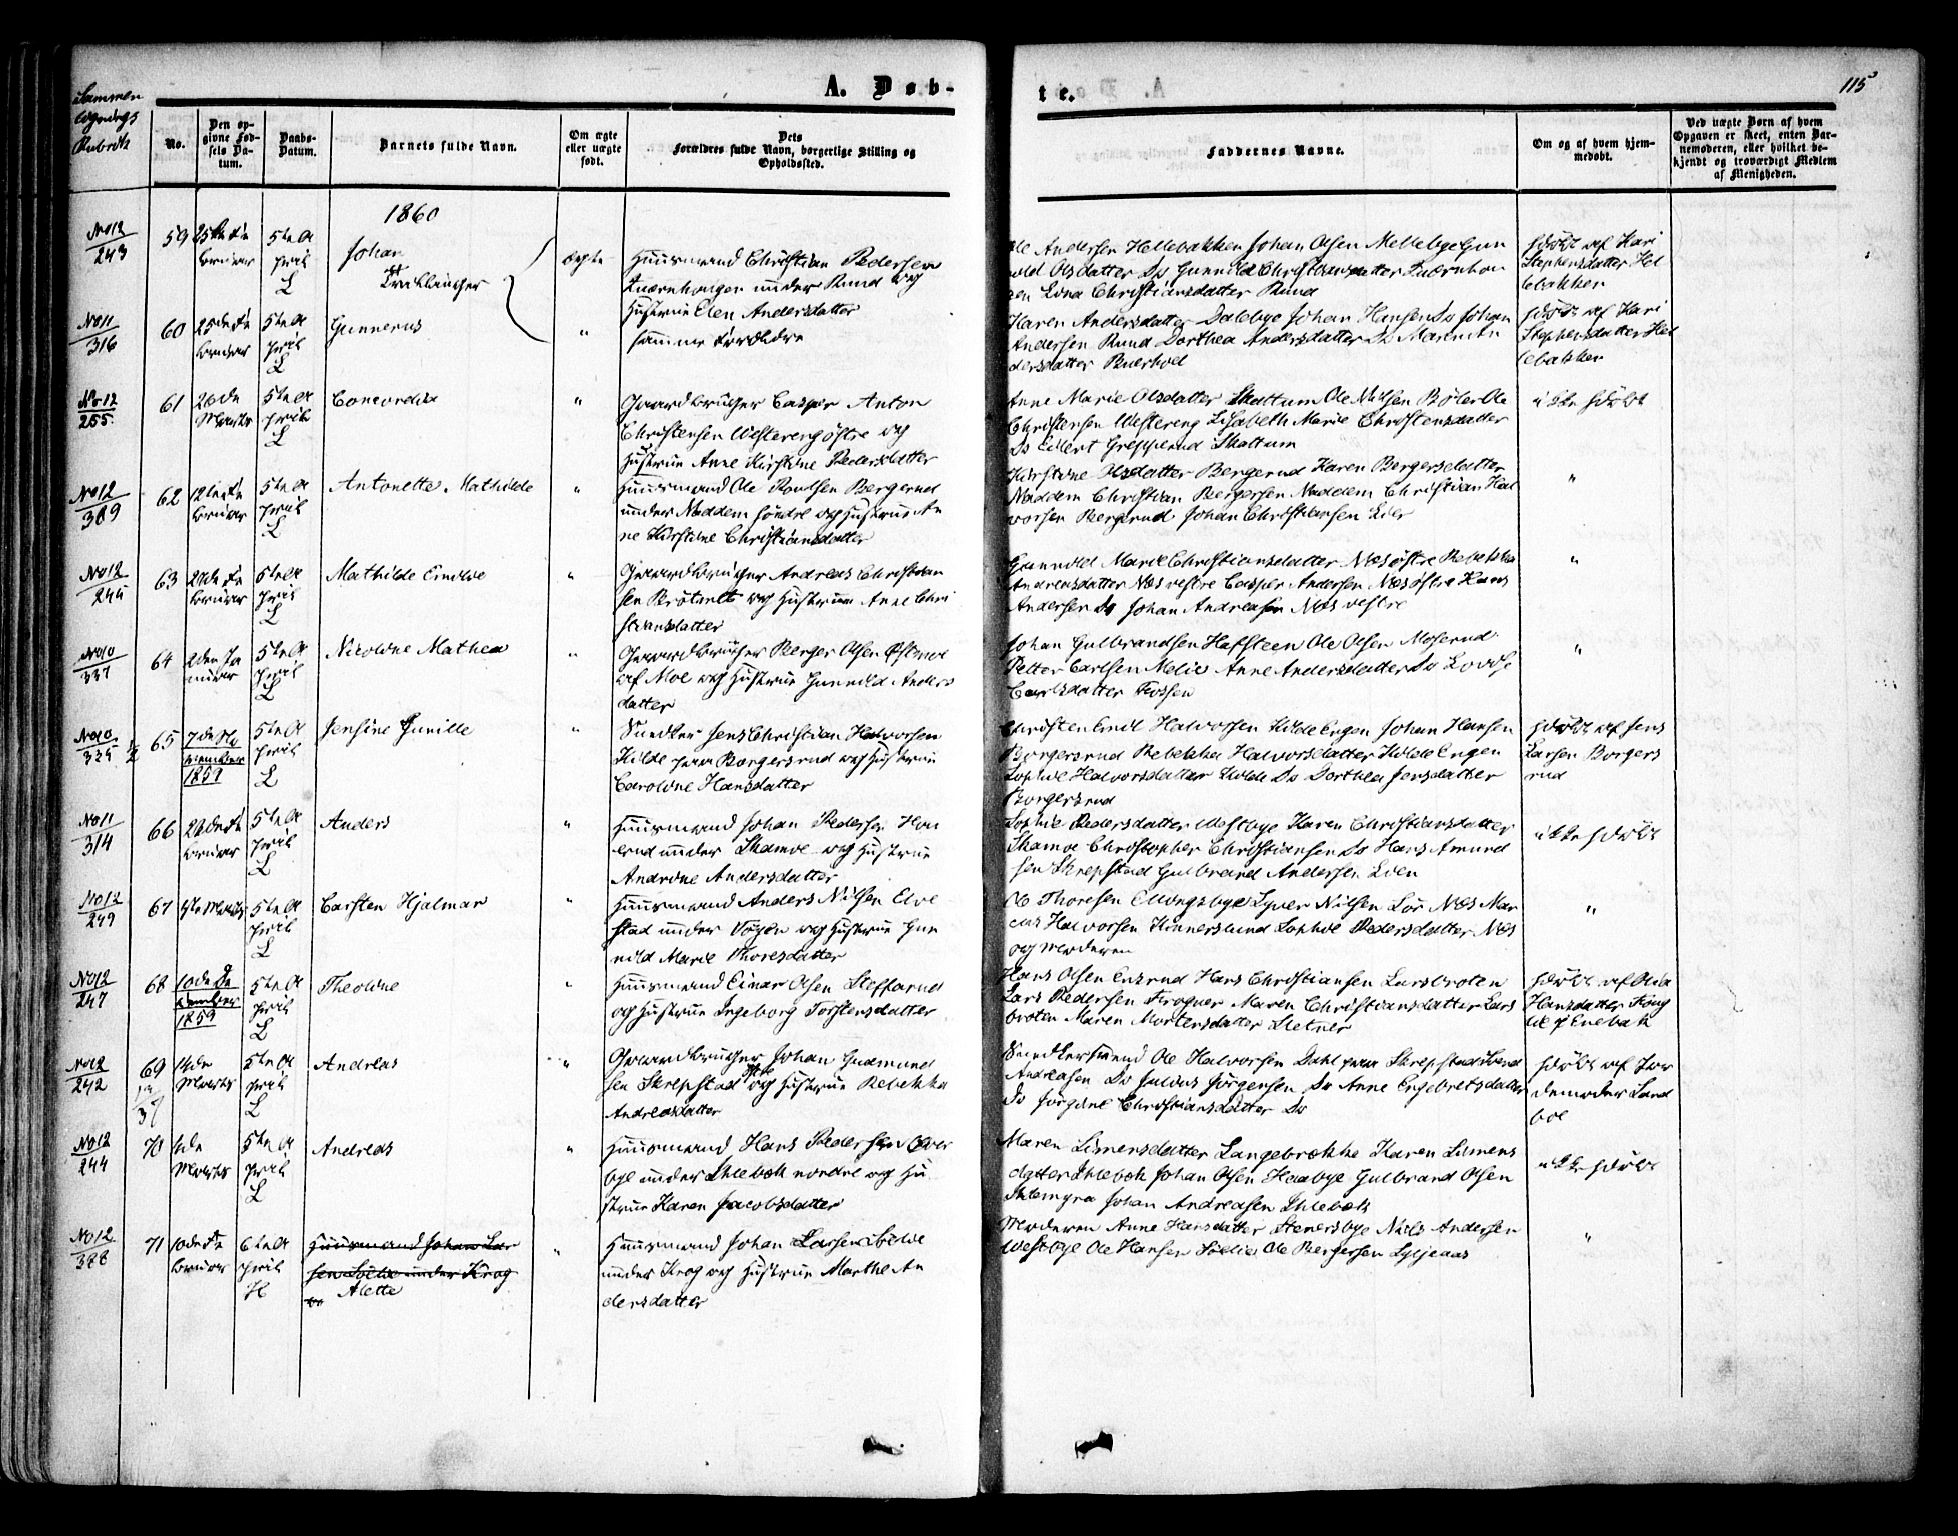 A. Døb-
te.
115
Sammen
No.
Den op-
givne Fød-
sels Da-
tum.
Daabs-
Datum.
Barnets fulde Navn.
Om ægte
eller uægte
født.
Dets
Forældres fulde Navn, borgerlige Stilling og
Opholdssted.
Faddernes Navne.
Om og af hvem hjem-
medøbt.
Ved uægte Børn af hvem
Opgaven er skeet, enten Bar-
nemoderen, eller hvilket be-
kjendt og troværdigt Medlem
af Menigheden.
1860
No 12
243
59
25de Fe
bruar
5te A
pril
L
Johan
Tvillinger
ægte
Huusmand Christian Pedersen
Kværnhougen under Rund og
Hustrue Elen Andersdatter
Ole Andersen Hellebakken Johan Olsen Mellebye Gun
Olsdatter Do Gunnild Christiansdatter Kværnhou
gen Lovise Christiansdatter Rund
hjdøbt af Kari
Stephensdatter Hel
lebakken
No 11
316
60
25de Fe
bruar
5te A
pril
L
Gunnerus
"
samme Forældre
Karen Andersdatter Dalebye Johan Hansen Do Johan
Andersen Rund Dorthea Andersdatter Do Maren An
dersdatter Buerhoel
hjdøbt af Kari
Stephensdatter Hel
lebakken
No 12
255
61
2de
Marts
5te A
pril
L
Concordia
"
Gaardbruger Casper Anton
Christensen Westereng østre og
Hustrue Anne Kirstine Pedersdatter
Anne Marie Olsdatter Skattum Ole Nilsen Bøler Ole
Christensen Westereng Lisabeth Marie Christensdatter
Do Edvert Gresserud Skattum
ikke hjdøbt
No 12
389
62
12te Fe
bruar
5te A
pril
L
Antonette Mathilde
"
Huusmand Ole Knudsen Bergerud
under Naddem søndre og Hustrue An
ne Kirstine Christiansdatter
Kirstine Olsdatter Bergerud Karen Bergersdatter
Naddem Christian Bergersen Naddem Christian Hal
vorsen Bergerud Johan Christiansen Lier
"
No 12
245
63
21de Fe
bruar
5te A
pril
L
Mathilde Emilie
"
Gaardbruger Andreas Christian
sen Brøtmet og Hustrue Anne Chri
stiansdatter
Gunnild Marie Christiansdatter Næs østre Rebekka
Andreasdatter Næs vestre Casper Andersen Næs østre Hans
Andersen Do Johan Andreasen Næs vestre
"
No 10
337
64
2den Ja
nuar
5te A
pril
L
Nicoline Mathea
"
Gaardbruger Berger Olsen Østmoe
af Moe og Hustrue Gunnild Anders
datter
Johan Gulbrandsen Haffsteen Ole Olsen Moserud
Petter Carlsen Melie Anne Andersdatter Do Lovise
Carlsdatter Fossen
"
No 10
335
65
7de No
vember
1859
5te A
pril
L
Jensine Gunille
"
Snedker Jens Christian Halvorsen
Hilde paa Borgersrud og Hustrue
Caroline Hansdatter
Christen Emil Halvorsen Hilde Engen Johan Hansen
Borgersrud Rebekka Halvorsdatter Hilde Engen
Sophie Halvorsdatter Hilde Do Dorthea Jensdatter
Borgersrud
hjdøbt af Jens
Larsen Borgers
rud
No 11
314
66
22de Fe
bruar
5te A
pril
L
Anders
"
Huusmand Johan Pedersen Hou
erud under Skamoe og Hustrue
Andrine Andersdatter
Sophie Pedersdatter Westbye Karen Christiansdatter
Skamoe Christopher Christiansen Do Hans Amund
sen Skrepstad Gulbrand Andersen Lien
ikke hjdøbt
No 12
249
67
9de Marts
5te A
pril
L
Carsten Hjalmar
"
Huusmand Anders Nilsen Elve
stad under Vøyen og Hustrue Gun
nild Marie Thoresdatter
Ole Thoresen Ellingsbye Syver Nilsen Lør Næs Mar
cus Halvorsen Kinnerslund Sophie Pedersdatter Næs
og Moderen
"
No 12
247
68
10de De
cember
1859
5te A
pril
L
Theoline
"
Huusmand Einar Olsen Steffarud
og Hustrue Ingeborg Torstensdatter
Hans Olsen Enerud Hans Christiansen Larsbroten
Lars Pedersen Frogner Maren Christiansdatter Lars
broten Maren Mortensdatter Sletner
hjdøbt af Olia
Hansdatter Kong
lie i Enebak
No 12
242
69
14de
Marts
5te A
pril
L
Andreas
"
Gaardbruger Johan Gudmund
sen Skrepstad østre og Hustrue Rebekka
Andreasdatter
Snedkersvend Ole Halvorsen Dahl paa Skrepstad Svend
Andreasen Do Julius Jørgensen Do Anne Engebretsdatter
Do Jørgine Christiansdatter Do
hjdøbt af Jor
demoder Sand
boe
No 12
244
70
1de
Marts
5te A
pril
L
Andreas
"
Huusmand Hans Pedersen Over
bye under Ihlebæk nordre og Hu
strue Karen Jacobsdatter
Maren Simensdatter Langebrække Karen Simens
datter Ihlebæk Johan Olsen Haabye Gulbrand Olsen
Ihlemyra Johan Andreasen Ihlebæk
ikke hjdøbt
No 12
388
71
10de Fe
bruar
6te A
pril
H
Huusmand Johan Lar
sen Solie under Krog
Alette
"
Huusmand Johan Larsen Solie
under Krog og Hustrue Marthe An
dersdatter
Moderen Anne Hansdatter Stenersbye Niels Andersen
Westbye Ole Hansen Solie Ole Bergersen Lysjeaas
"